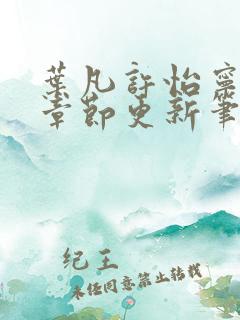 葉凡許怡寧
章節更新筆
纪王
未经同意禁止转载